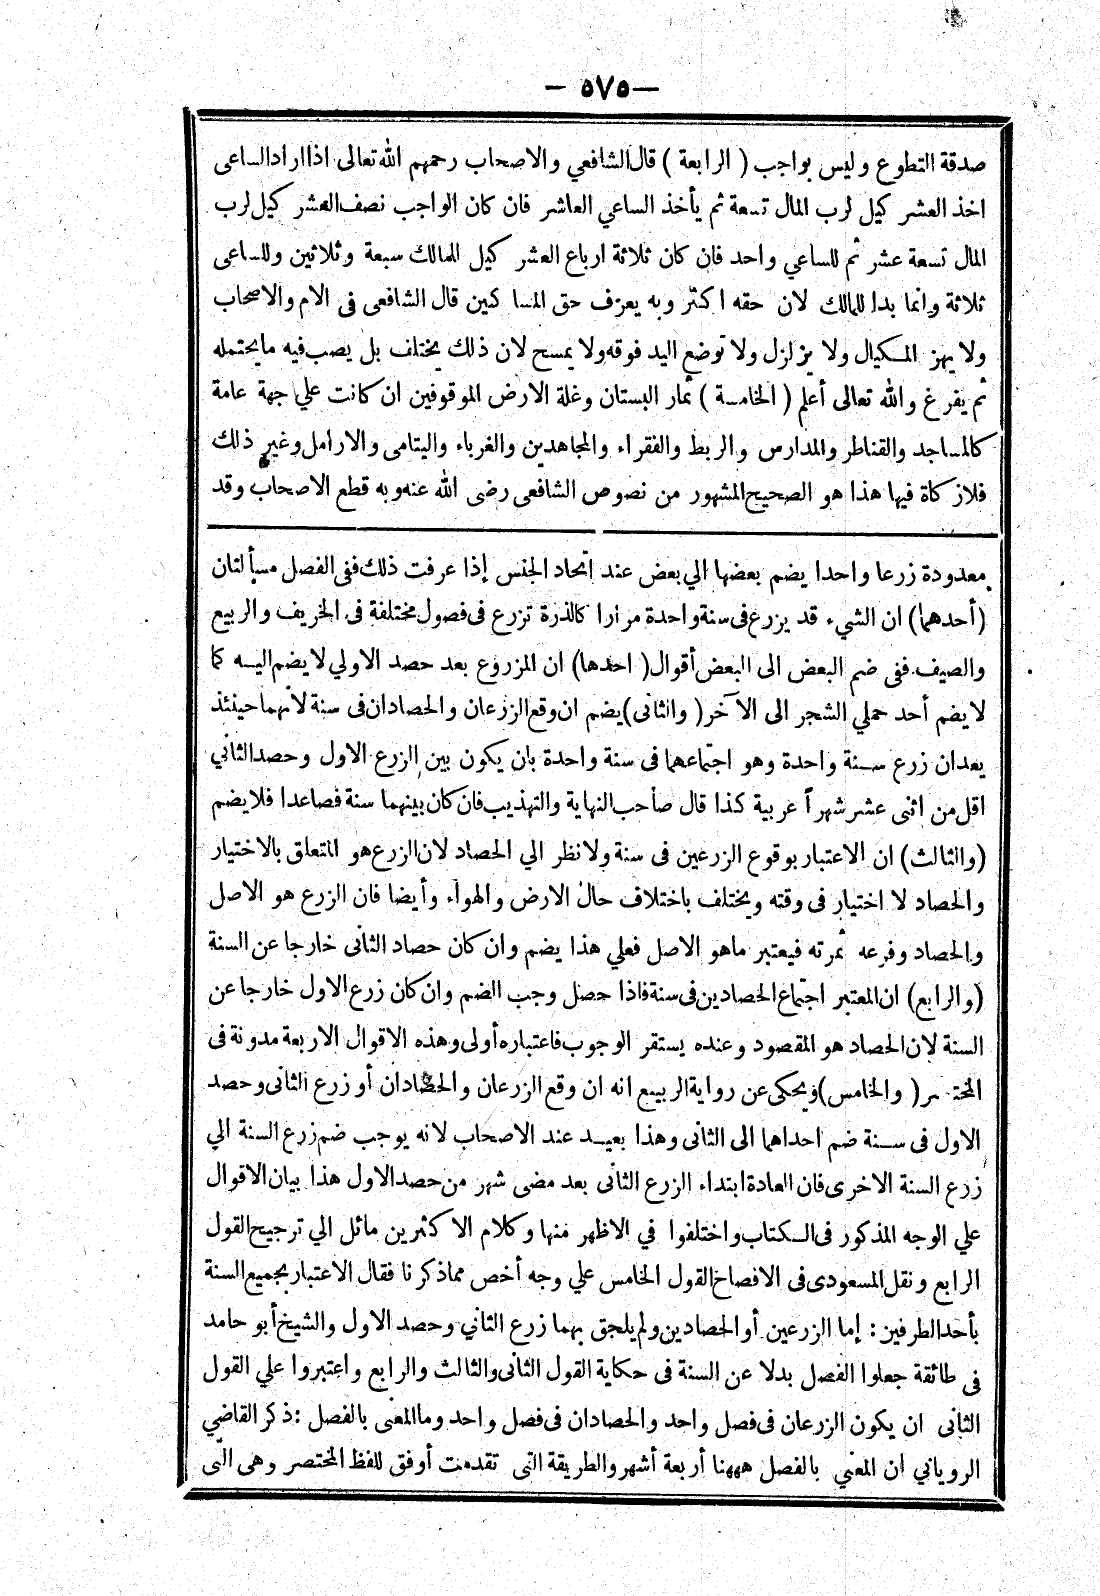 — ٥٧٥ —
صدقة التطوع وليس بواجب ( الرابعة ) قال الشافعي والاصحاب رحمهم الله تعالى اذا اراد الساعى
اخذ العشر كيل لرب المال تسعة ثم يأخذ الساعي العاشر فان كان الواجب نصف العشر كيل لرب
المال تسعة عشر ثم للساعي واحد فان كان ثلاثة ارباع العشر كيل للمالك سبعة وثلاثين وللساعى
ثلاثة وانما بدا للمالك لان حقه اكثر وبه يعرف حق المساكين قال الشافعى فى الام والاصحاب
ولا يهز المكيال ولا يزلزل ولا توضع اليد فوقه ولا يمسح لان ذلك يختلف بل يصب فيه ما يحتمله
ثم يفرغ والله تعالى أعلم ( الخامسة ) ثمار البستان وغلة الارض الموقوفين ان كانت علي جهة عامة
كالمساجد والقناطر والمدارس والربط والفقراء والمجاهدين والغرباء واليتامى والارامل وغير ذلك
فلا زكاة فيها هذا هو الصحيح المشهور من نصوص الشافعى رضى الله عنه وبه قطع الاصحاب وقد
معدودة زرعا واحدا يضم بعضها الي بعض عند اتحاد الجنس إذا عرفت ذلك ففى الفصل مسألتان
(أحدهما) ان الشيء قد يزرع فى سنة واحدة مرارا كالذرة تزرع فى فصول مختلفة فى الخريف والربيع
والصيف ففى ضم البعض الى البعض أقوال ( احدها) ان المزروع بعد حصد الاولي لا يضم اليه كما
لا يضم أحد حملي الشجر الى الآخر ( والثانى ) يضم ان وقع الزرعان والحصادان فى سنة لانهما حينئذ
يعدان زرع سنة واحدة وهو اجتماعهما فى سنة واحدة بان يكون بين الزرع الاول وحصد الثاني
اقل من اثنى عشر شهراً عربية كذا قال صاحب النهاية والتهذيب فان كان بينهما سنة فصاعدا فلا يضم
(والثالث) ان الاعتبار بوقوع الزرعين فى سنة ولا نظر الي الحصاد لان الزرع هو المتعلق بالاختيار
والحصاد لا اختيار فى وقته ويختلف باختلاف حال الارض والهواء وأيضا فان الزرع هو الاصل
والحصاد وفرعه ثمرته فيعتبر ما هو الاصل فعلي هذا يضم وان كان حصاد الثانى خارجا عن السنة
(والرابع) ان المعتبر اجتماع الحصادين فى سنة فاذا حصل وجب الضم وان كان زرع الاول خارجا عن
السنة لان الحصاد هو المقصود وعنده يستقر الوجوب فاعتباره أولى وهذه الاقوال الاربعة مدونة فى
المختصر ( والخامس) ويحكى عن رواية الربيع انه ان وقع الزرعان والحصادان أو زرع الثانى وحصد
الاول فى سنة ضم احداهما الى الثانى وهذا بعيد عند الاصحاب لانه يوجب ضم زرع السنة الي
زرع السنة الاخرى فان العادة ابتداء الزرع الثانى بعد مضى شهر من حصد الاول هذا بيان الاقوال
علي الوجه المذكور فى الكتاب واختلفوا في الاظهر منها وكلام الاكثرين مائل الي ترجيح القول
الرابع ونقل المسعودى فى الافصاح القول الخامس علي وجه أخص مما ذكرنا فقال الاعتبار بجميع السنة
بأحد الطرفين : إما الزرعين أو الحصادين ولم يلحق بهما زرع الثاني وحصد الاول والشيخ أبو حامد
فى طائفة جعلوا الفصل بدلا عن السنة فى حكاية القول الثانى والثالث والرابع واعتبروا علي القول
الثانى ان يكون الزرعان فى فصل واحد والحصادان فى فصل واحد وما المعنى بالفصل : ذكر القاضي
الروياني ان المعني بالفصل ههنا أربعة أشهر والطريقة التى تقدمت أوفق للفظ المختصر وهى التى